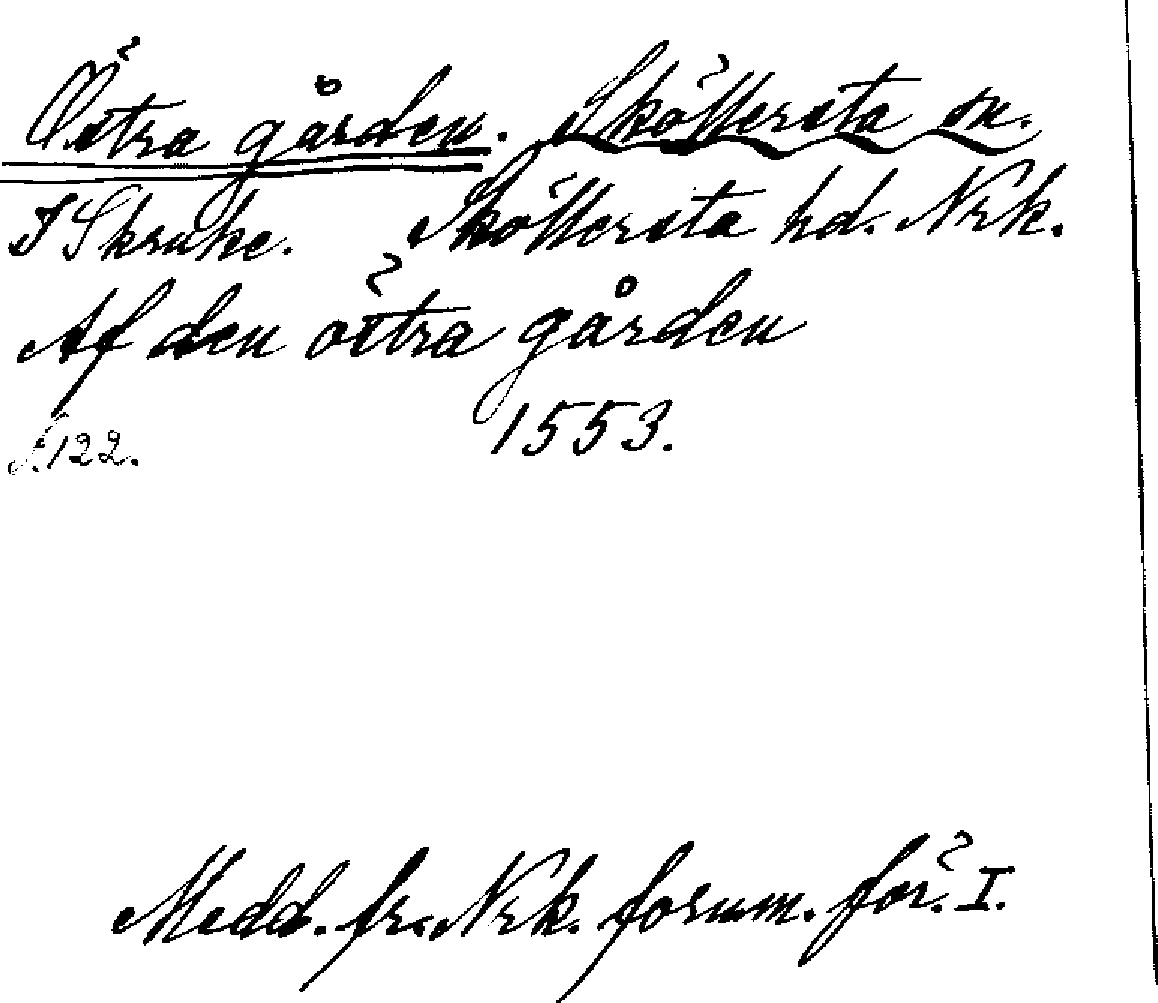 Östra gården. Sköllersta sn.
I Skruke. Sköllersta hd. Nrk.
Af den östra gården
1553.
S. 122.
Medd. fr. Nrk. fornm. för. I.